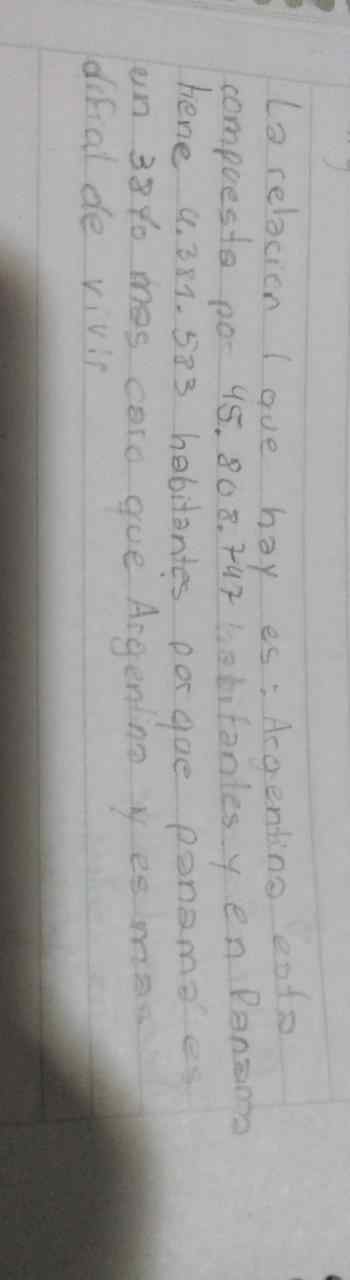 La relacion ( que hay es: Argentina esta
compuesta por 45.808.747 habitantes y en Panama
tiene 4.381.583 habitantes porque panamá es
un 38% mas caro que Argentina y es mas
dificil de vivir